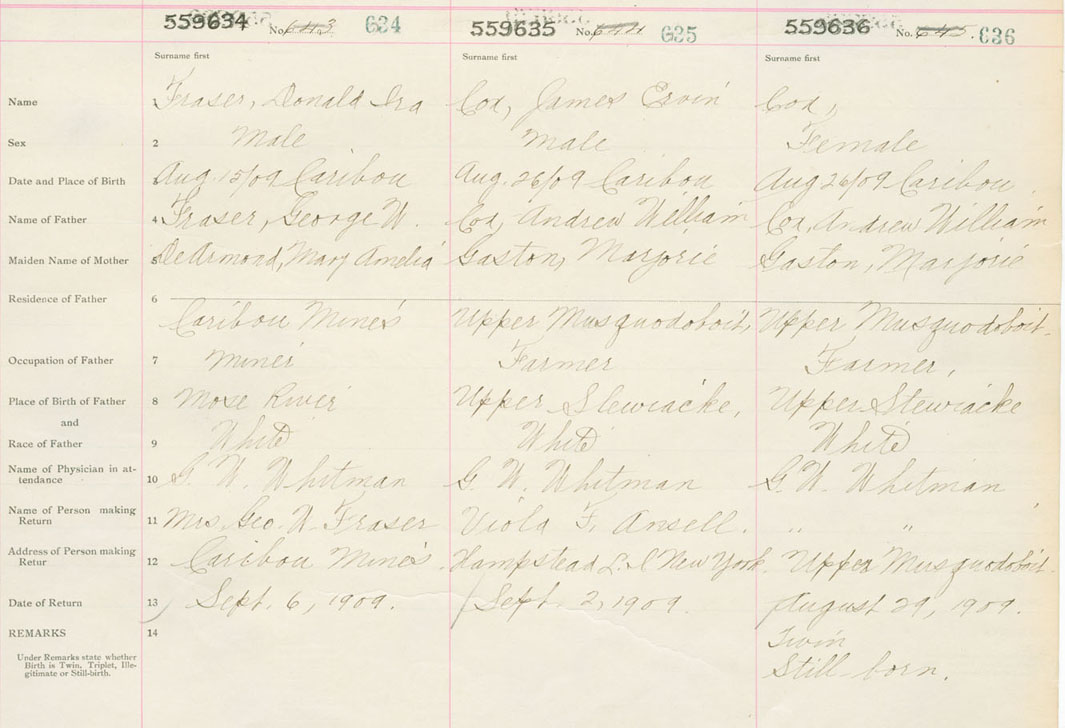 559634 No. 643 634 559635 No. 644 635 559636 No. 645. 636
Surname first Surname first Surname first
Name Fraser, Donald Ira Cox, James Ervin Cox,
Sex 2 Male Male Female
Date and Place of Birth 3 Aug. 15/09 Caribou Aug. 26/09 Caribou Aug 26/09 Caribou.
Name of Father 4 Fraser, George W. Cox, Andrew William Cox, Andrew William
Maiden Name of Mother 5 DeArmond, Mary Amelia Gaston, Marjorie Gaston, Marjorie
Residence of Father 6
Caribou Mines Upper Musquodoboit, Upper Musquodoboit.
Occupation of Father 7 Miner Farmer Farmer,
Place of Birth of Father 8 Mose River Upper Stewiacke, Upper Stewiacke
and
Race of Father 9 White White White
Name of Physician in at-
tendance 10 G. W. Whitman G. W. Whitman G. W. Whitman
Name of Person making
Return 11 Mrs. Geo. W. Fraser Viola F. Ansell. " "
Address of Person making
Retur 12 Caribou Mines. Hampstead L. I New York. Upper Musquodoboit.
Date of Return 13 Sept. 6, 1909. Sept. 2, 1909. August 29, 1909.
REMARKS 14 Twin
Under Remarks state whether
Birth is Twin, Triplet, Ille-
gitimate or Still-birth.
Still born.